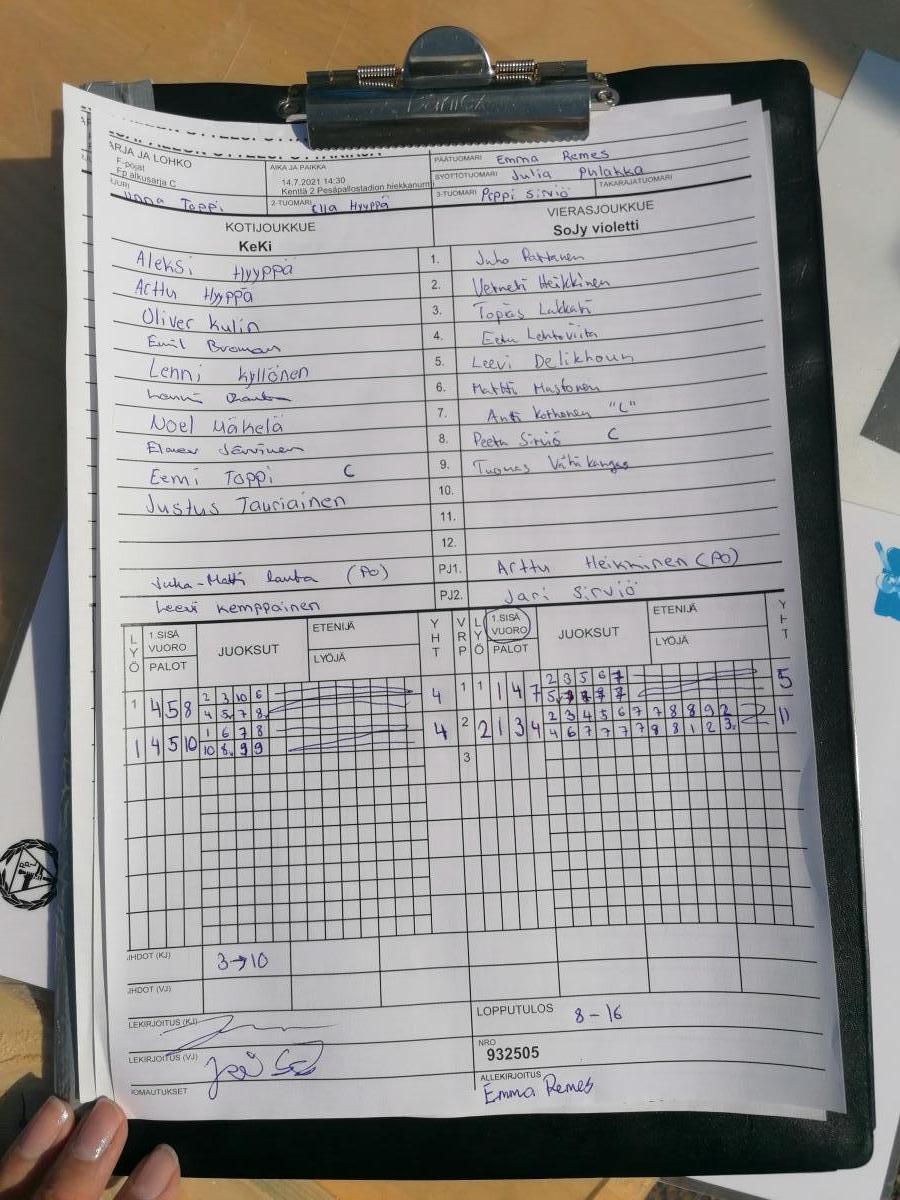 Fantex
ARJA JA LOHKO
F-pojat
Fp alkusarja C
AIKA JA PAIKKA
14.7.2021 14:30
Kenttä 2 Pesäpallostadion hiekkanurmi
PÄÄTUOMARI Emma Remes
SYÖTTÖTUOMARI Julia Pulakka
Toppi
2-TUOMARI Ella Hyyppä
3-TUOMARI Peppi Sirviö
TAKARAJATUOMARI
KOTIJOUKKUE
KeKi
VIERASJOUKKUE
SoJy violetti
Aleksi Hyyppä 1. Juho Partanen
Arttu Hyyppä 2. Verneri Heikkinen
Oliver Kulin 3. Topias
Emil Broman 4. Eetu Lehtoviita
Lenni Kyllönen 5. Leevi Delikhoun
6. Matti Mustonen
Noel Mäkelä 7. Antti Korhonen "L"
Elmer Järvinen 8. Peetu Sirviö C
Eemi Toppi C 9. Tuomas Vähäkangas
Justus Tauriainen 10.
11.
12.
Juha-Matti Lauta (PO) PJ1. Arttu Heikkinen (PO)
Leevi Kemppainen PJ2. Jari Sirviö
LYÖ 1.SISÄ VUORO PALOT JUOKSUT ETENIJÄ LYÖJÄ YHT VRP LYÖ 1.SISÄ VUORO PALOT JUOKSUT ETENIJÄ LYÖJÄ YHT
1 4 5 8 2 3 10 6 4 1 1 1 4 7 2 3 5 6 7 5
4 5 7 8
1 4 5 10 1 6 7 8 4 2 2 1 3 4 2 3 4 5 6 7 7 8 8 9 2 11
10 8 9 9 4 6 7 7 7 7 8 8 1 2 3
3
IHDOT (KJ) 3→10
IHDOT (VJ)
LEKIRJOITUS (KJ)
LOPPUTULOS 8 - 16
LEKIRJOITUS (VJ)
NRO
932505
OMAUTUKSET
ALLEKIRJOITUS
Emma Remes